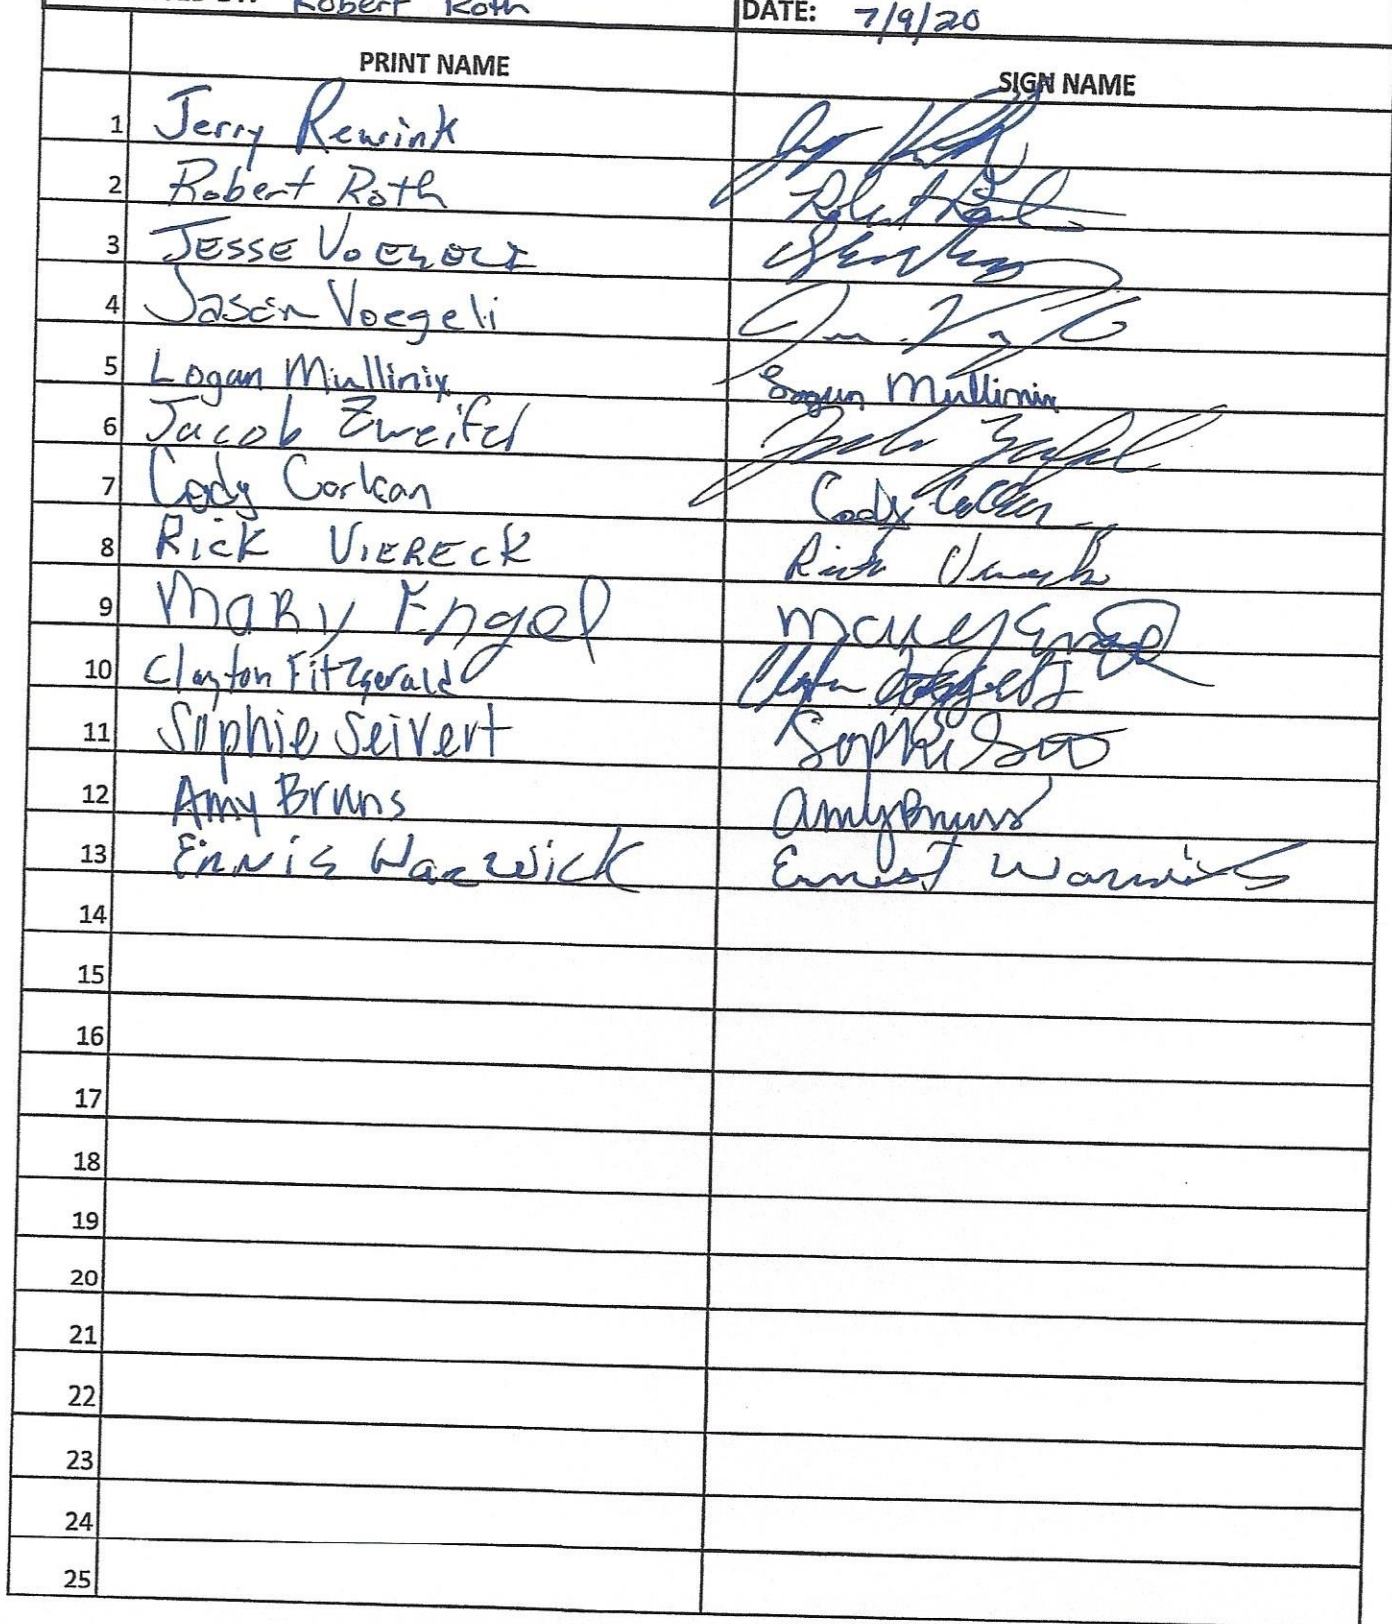 Robert Roth DATE: 7/9/20
PRINT NAME SIGN NAME
1 Jerry Rewink
2 Robert Roth Robert Roth
3 JESSE VOEGELI
4 Jason Voegeli
5 Logan Mullinix Logan Mullinix
6 Jacob Zweifel Jacob Zweifel
7 Cody Corkan Cody Corkan
8 RICK VIERECK Rick Viereck
9 Mary Engel Mary Engel
10 Clayton Fitzgerald Clayton Fitzgerald
11 Sophie Seivert Sophie
12 Amy Bruns Amy Bruns
13 Ennis Warwick Ernest Warwick
14
15
16
17
18
19
20
21
22
23
24
25